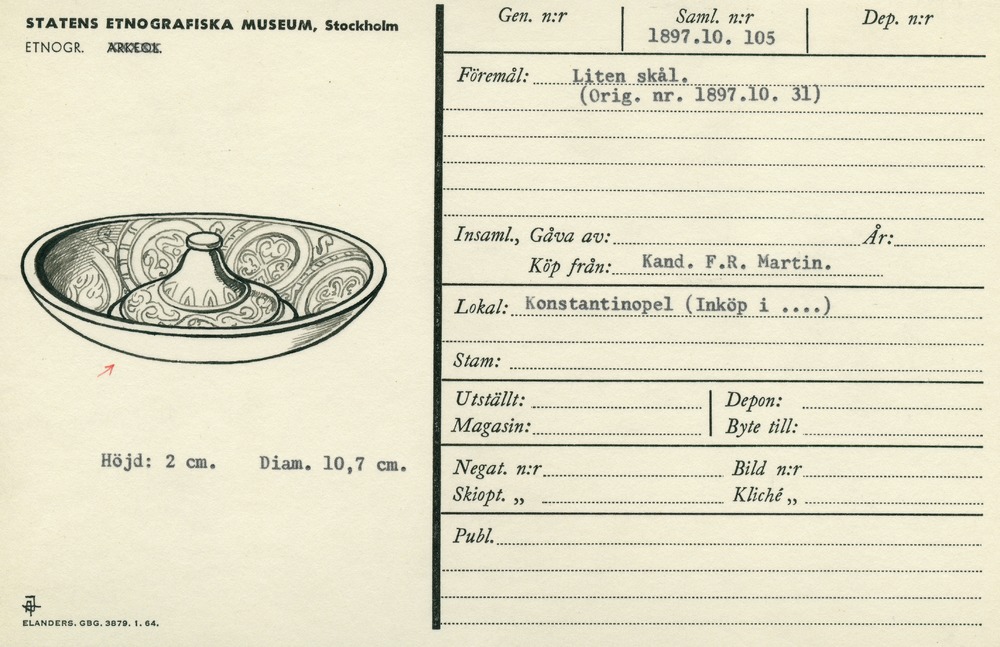 STATENS ETNOGRAFISKA MUSEUM, Stockholm
ETNOGR. ARKEOL.
Höjd: 2 cm. Diam. 10,7 cm.
ELANDERS. GBG. 3879. 1. 64.
Gen. n:r Saml. n:r Dep. n:r
1897.10. 105
Föremål: Liten skål.
(Orig. nr. 1897.10. 31)
Insaml., Gåva av: År:
Köp från: Kand. F.R. Martin.
Lokal: Konstantinopel (Inköp i ....)
Stam:
Utställt: Depon:
Magasin: Byte till:
Negat. n:r Bild n:r
Skiopt. „ Kliché „
Publ.